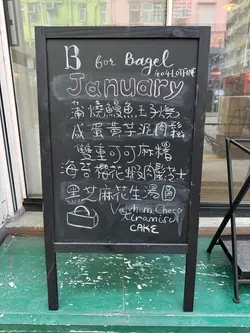 B for Bagel
January
蒲燒鰻魚玉子燒
咸蛋黃芋泥肉鬆
雙重可可麻糬
海苔櫻花蝦肉鬆芝士
黑芝麻花生湯圓
Valrhona Choco
Tiramisu
CAKE